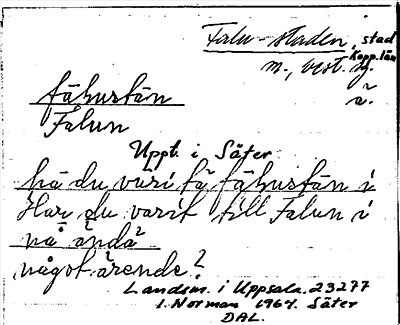 Falu-staden, stad
Kopp. län
m., best. sg.
fåhustån
ä.
Falun
Uppt. i Säter
hå du vuri tå fåhustån i
Har du varit till Falun i
nå ända
något ärende?
Landsm. i Uppsala. 23277
I. Norman 1964. Säter
DAL.